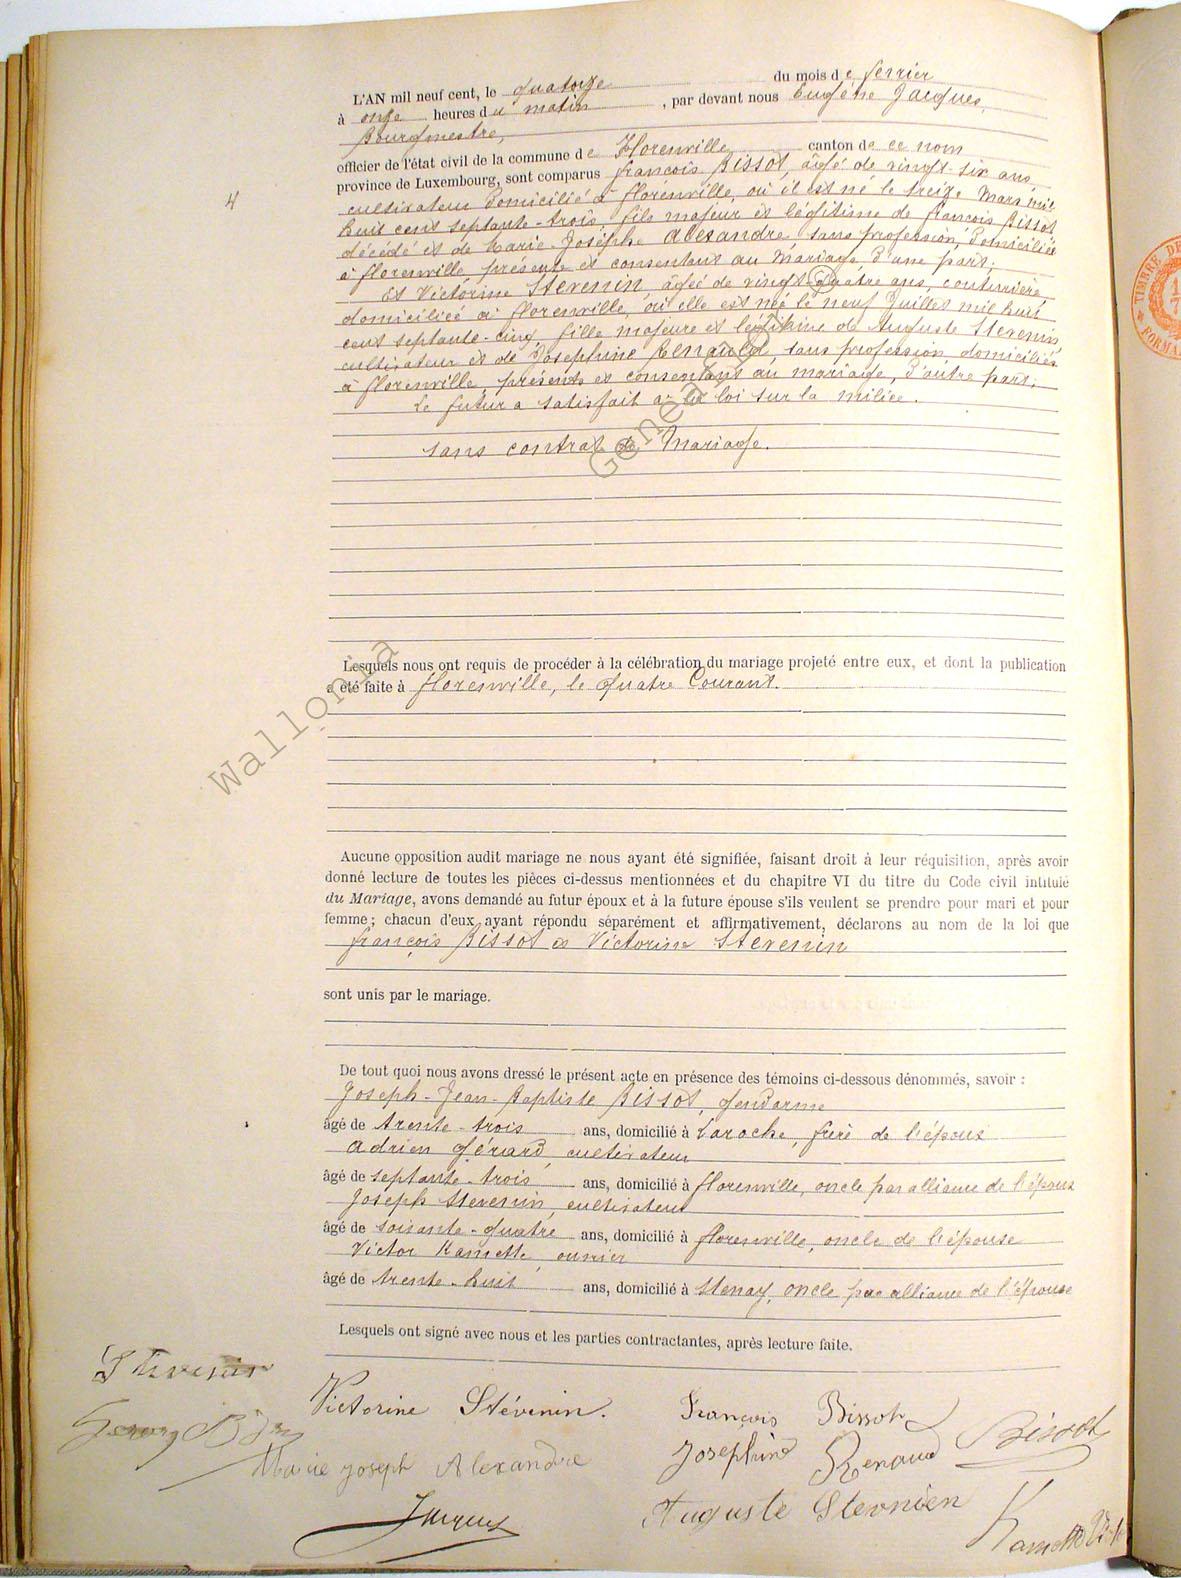 L'AN mil neuf cent, le quatorze du mois de ferrier
à onze heures du matin, par devant nous Eugène Jacques,
Bourgmestre,
officier de l'état civil de la commune de Florenville canton de ce nom
province de Luxembourg, sont comparus françois Bissot, âgé de vingt-six ans
cultivateur domicilié à florenville, où il est né le treize Mars mil
huit cent septante-trois, fils majeur et légitime de françois Bissot
décédé et de Marie-Josèphe Alexandre, sans profession, domiciliée
à florenville, présente et consentant au mariage, d'une part;
Et Victorine Stevenin, âgée de vingt-quatre ans, couturière
domiciliée à florenville, où elle est née le neuf Juillet mil huit
cent septante-cinq, fille majeure et légitime de Auguste Stevenin,
cultivateur et de Josephine Renauld, sans profession, domiciliés
à florenville, présents et consentant au mariage, d'autre part;
Le futur a satisfait à la loi sur la milice.
sans contrat de Mariage.
Lesquels nous ont requis de procéder à la célébration du mariage projeté entre eux, et dont la publication
a été faite à florenville, le quatre Courant.
Aucune opposition audit mariage ne nous ayant été signifiée, faisant droit à leur réquisition, après avoir
donné lecture de toutes les pièces ci-dessus mentionnées et du chapitre VI du titre du Code civil intitulé
du Mariage, avons demandé au futur époux et à la future épouse s'ils veulent se prendre pour mari et pour
femme; chacun d'eux ayant répondu séparément et affirmativement, déclarons au nom de la loi que
françois Bissot et Victorine Stevenin
sont unis par le mariage.
De tout quoi nous avons dressé le présent acte en présence des témoins ci-dessous dénommés, savoir :
Joseph-Jean-Baptiste Bissot, gendarme
âgé de trente-trois ans, domicilié à Laroche, frère de l'époux
Adrien Gérard, cultivateur
âgé de septante-trois ans, domicilié à florenville, oncle par alliance de l'époux
Joseph Stevenin, cultivateur
âgé de soixante-quatre ans, domicilié à florenville, oncle de l'épouse
Victor Ramette, ouvrier
âgé de trente-huit ans, domicilié à Stenay, oncle par alliance de l'épouse
Lesquels ont signé avec nous et les parties contractantes, après lecture faite.
Stevenin
Victorine Stévenin. François Bissot
Bissot
Marie joseph Alexandre Josephine Renaud
Jacques Auguste Stevnien
Ramette
4
Wallonia
Genealogy
TIMBRE DE
FORMA